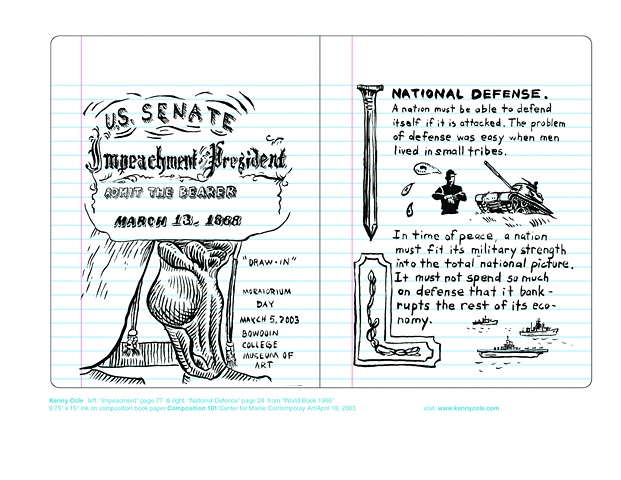 U.S. SENATE
Impeachment of the President
ADMIT THE BEARER
MARCH 13, 1868
"DRAW-IN"
MORATORIUM
DAY
MARCH 5, 2003
BOWDOIN
COLLEGE
MUSEUM OF
ART
NATIONAL DEFENSE.
A nation must be able to defend
itself if it is attacked. The problem
of defense was easy when men
lived in small tribes.
In time of peace, a nation
must fit its military strength
into the total national picture.
It must not spend so much
on defense that it bank-
rupts the rest of its eco-
nomy.
Kenny Cole left: "Impeachment" page 77 & right: "National Defence" page 24 from "World Book 1966"
9.75" x 15" ink on composition book paper Composition 101/Center for Maine Contemporary Art/April 19, 2003
visit: www.kennycole.com